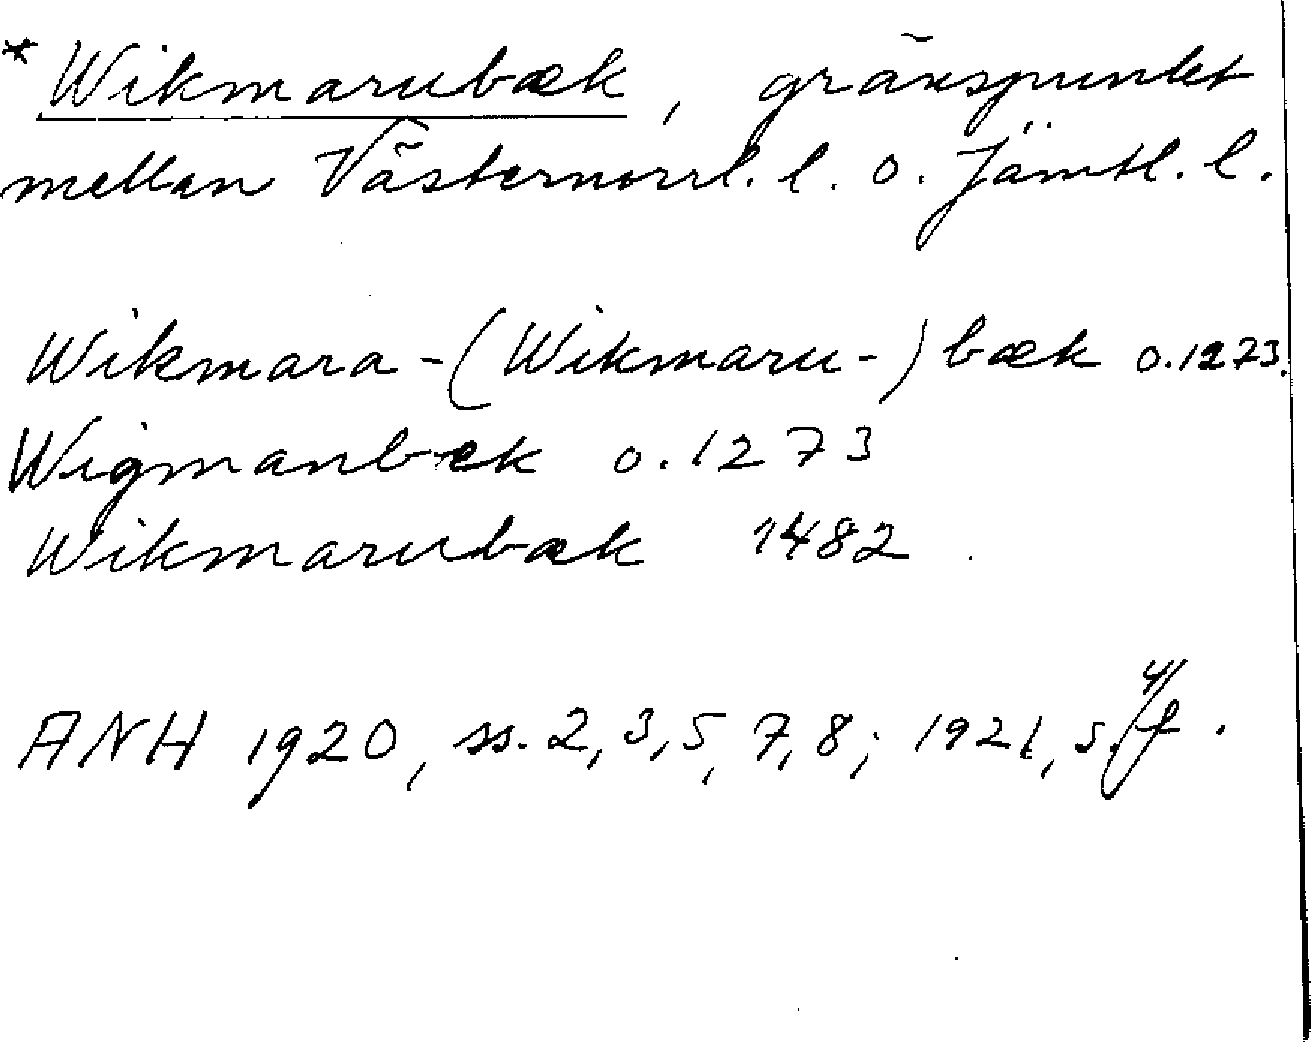 * Wikmarubæk, gränspunkt
mellan Västernorrl. l. o. Jämtl. l.
Wikmara-(Wikmaru-)bæk o.1273.
Wigmanbæk o.1273
Wikmarubæk 1482.
ANH 1920, ss. 2, 3, 5, 7, 8; 1921, s. 4f.